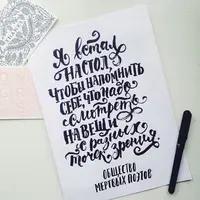 Я встал
НА СТОЛ,
ЧТОБЫ НАПОМНИТЬ
СЕБЕ, ЧТО НАДО
СМОТРЕТЬ
НА ВЕЩИ
с РАЗНЫХ
ТОЧЕК ЗРЕНИЯ
ОБЩЕСТВО
МЕРТВЫХ ПОЭТОВ